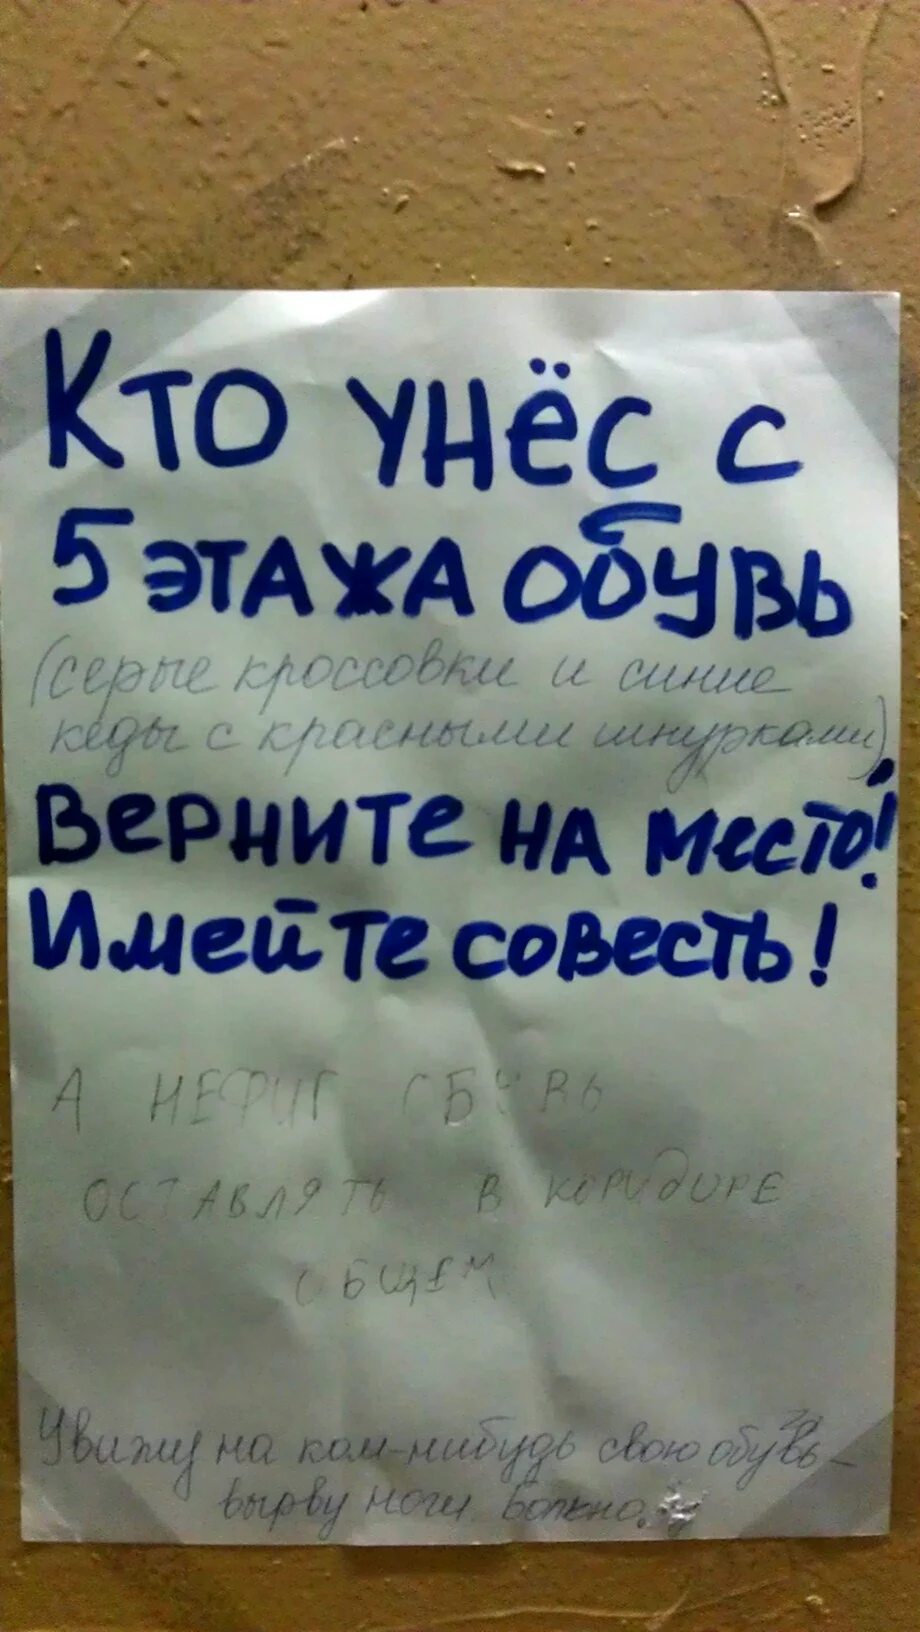 Кто унёс с
5 этажа обувь
(серые кроссовки и синие
кеды с красными шнурками),
Верните на место!
Имейте совесть!
А НЕФИГ ОБУВЬ
ОСТАВЛЯТЬ В КОРИДОРЕ
ОБЩЕМ
Увижу на ком-нибудь свою обувь -
вырву ноги. Больно.